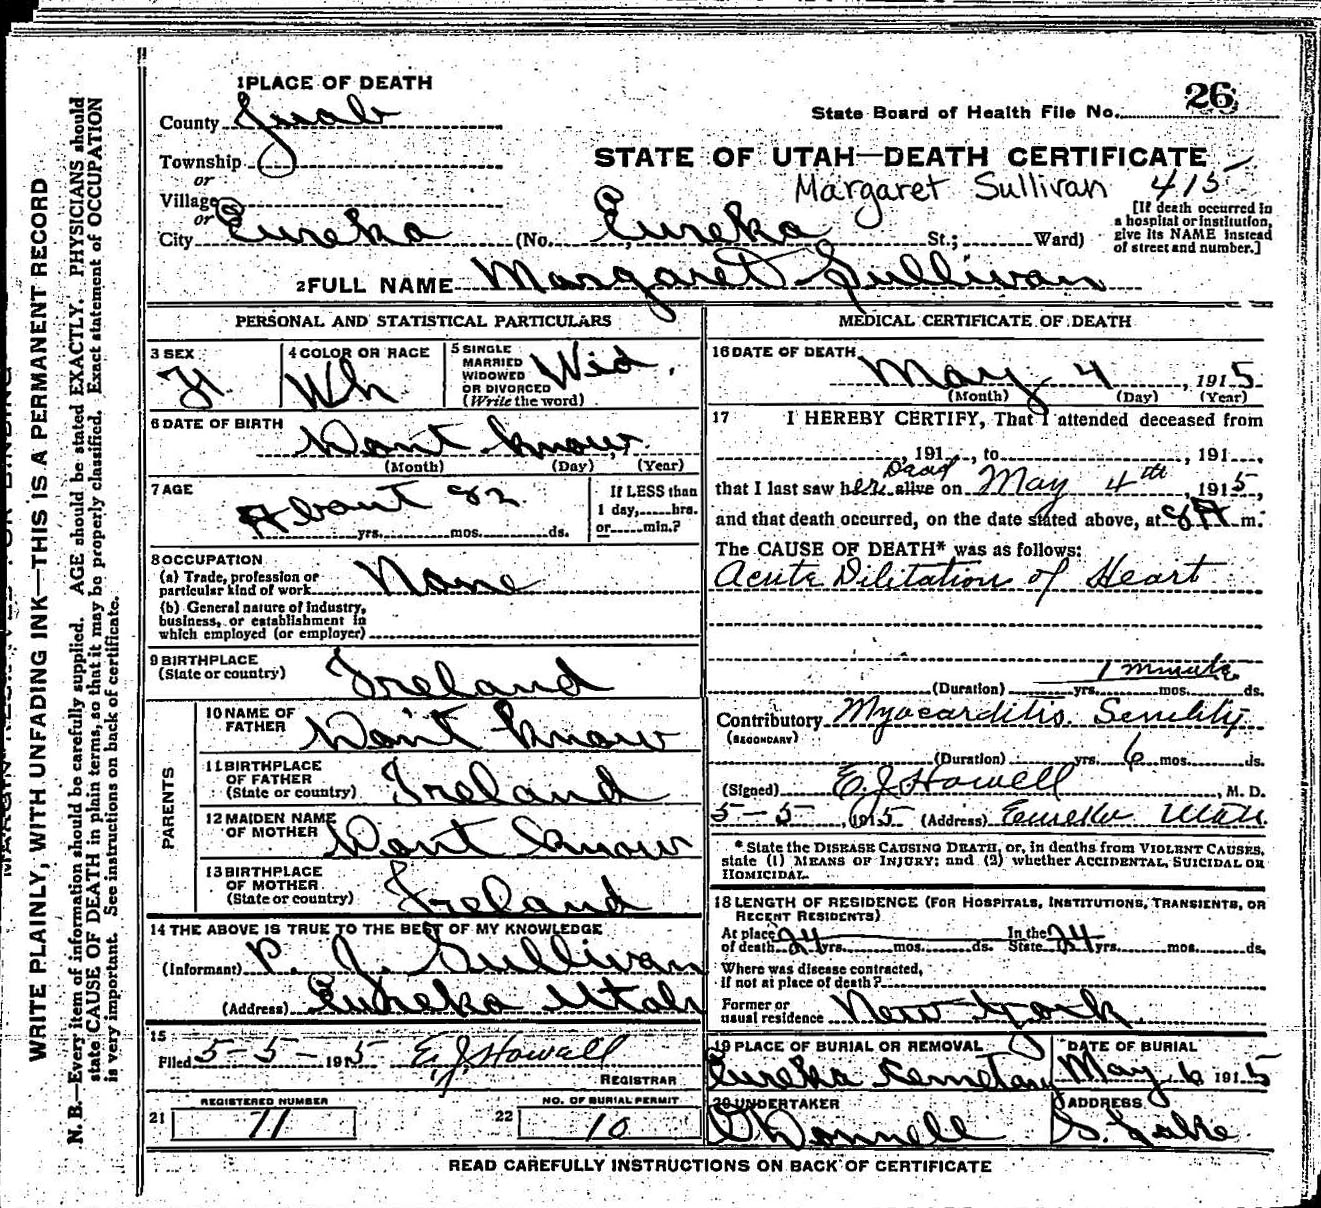 1 PLACE OF DEATH
26
County Juab
State Board of Health File No.
Township
or
STATE OF UTAH—DEATH CERTIFICATE
Village
Margaret Sullivan 415
or
City Eureka (No. Eureka St.; Ward)
[If death occurred in
a hospital or institution,
give its NAME instead
of street and number.]
2 FULL NAME Margaret Sullivan
PERSONAL AND STATISTICAL PARTICULARS
3 SEX
F
4 COLOR OR RACE
Wh
5 SINGLE
MARRIED
WIDOWED
OR DIVORCED
(Write the word)
Wid.
6 DATE OF BIRTH
Dont know
(Month) (Day) (Year)
7 AGE
About 82
yrs. mos. ds.
If LESS than
1 day, hrs.
or min.?
8 OCCUPATION
(a) Trade, profession or
particular kind of work None
(b) General nature of industry,
business, or establishment in
which employed (or employer)
9 BIRTHPLACE
(State or country) Ireland
PARENTS
10 NAME OF
FATHER Don't know
11 BIRTHPLACE
OF FATHER
(State or country) Ireland
12 MAIDEN NAME
OF MOTHER Dont know
13 BIRTHPLACE
OF MOTHER
(State or country) Ireland
14 THE ABOVE IS TRUE TO THE BEST OF MY KNOWLEDGE
(Informant) P. J. Sullivan
(Address) Eureka Utah
15
Filed 5-5-1915 E. J. Howell
REGISTRAR
21 REGISTERED NUMBER
71
22 NO. OF BURIAL PERMIT
10
MEDICAL CERTIFICATE OF DEATH
16 DATE OF DEATH
May 4, 1915
(Month) (Day) (Year)
17 I HEREBY CERTIFY, That I attended deceased from
, 191 , to , 191 ,
Dead
that I last saw her alive on May 4th, 1915,
and that death occurred, on the date stated above, at 8 A m.
The CAUSE OF DEATH* was as follows:
Acute Dilitation of Heart
1 minute
(Duration) yrs. mos. ds.
Contributory Myocarditis. Senility
(SECONDARY)
(Duration) yrs. 6 mos. ds.
(Signed) E. J. Howell, M. D.
5-5, 1915 (Address) Eureka Utah.
* State the DISEASE CAUSING DEATH, or, in deaths from VIOLENT CAUSES,
state (1) MEANS OF INJURY; and (2) whether ACCIDENTAL, SUICIDAL OR
HOMICIDAL.
18 LENGTH OF RESIDENCE (FOR HOSPITALS, INSTITUTIONS, TRANSIENTS, OR
RECENT RESIDENTS)
At place
of death 24 yrs. mos. ds.
In the
State 24 yrs. mos. ds.
Where was disease contracted,
If not at place of death?
Former or
usual residence New York
19 PLACE OF BURIAL OR REMOVAL
Eureka Cemetary
DATE OF BURIAL
May 6 1915
20 UNDERTAKER
O'Donnell
ADDRESS
S. Lake
READ CAREFULLY INSTRUCTIONS ON BACK OF CERTIFICATE
WRITE PLAINLY, WITH UNFADING INK—THIS IS A PERMANENT RECORD
N. B.—Every item of information should be carefully supplied. AGE should be stated EXACTLY. PHYSICIANS should
state CAUSE OF DEATH in plain terms, so that it may be properly classified. Exact statement of OCCUPATION
is very important. See instructions on back of certificate.